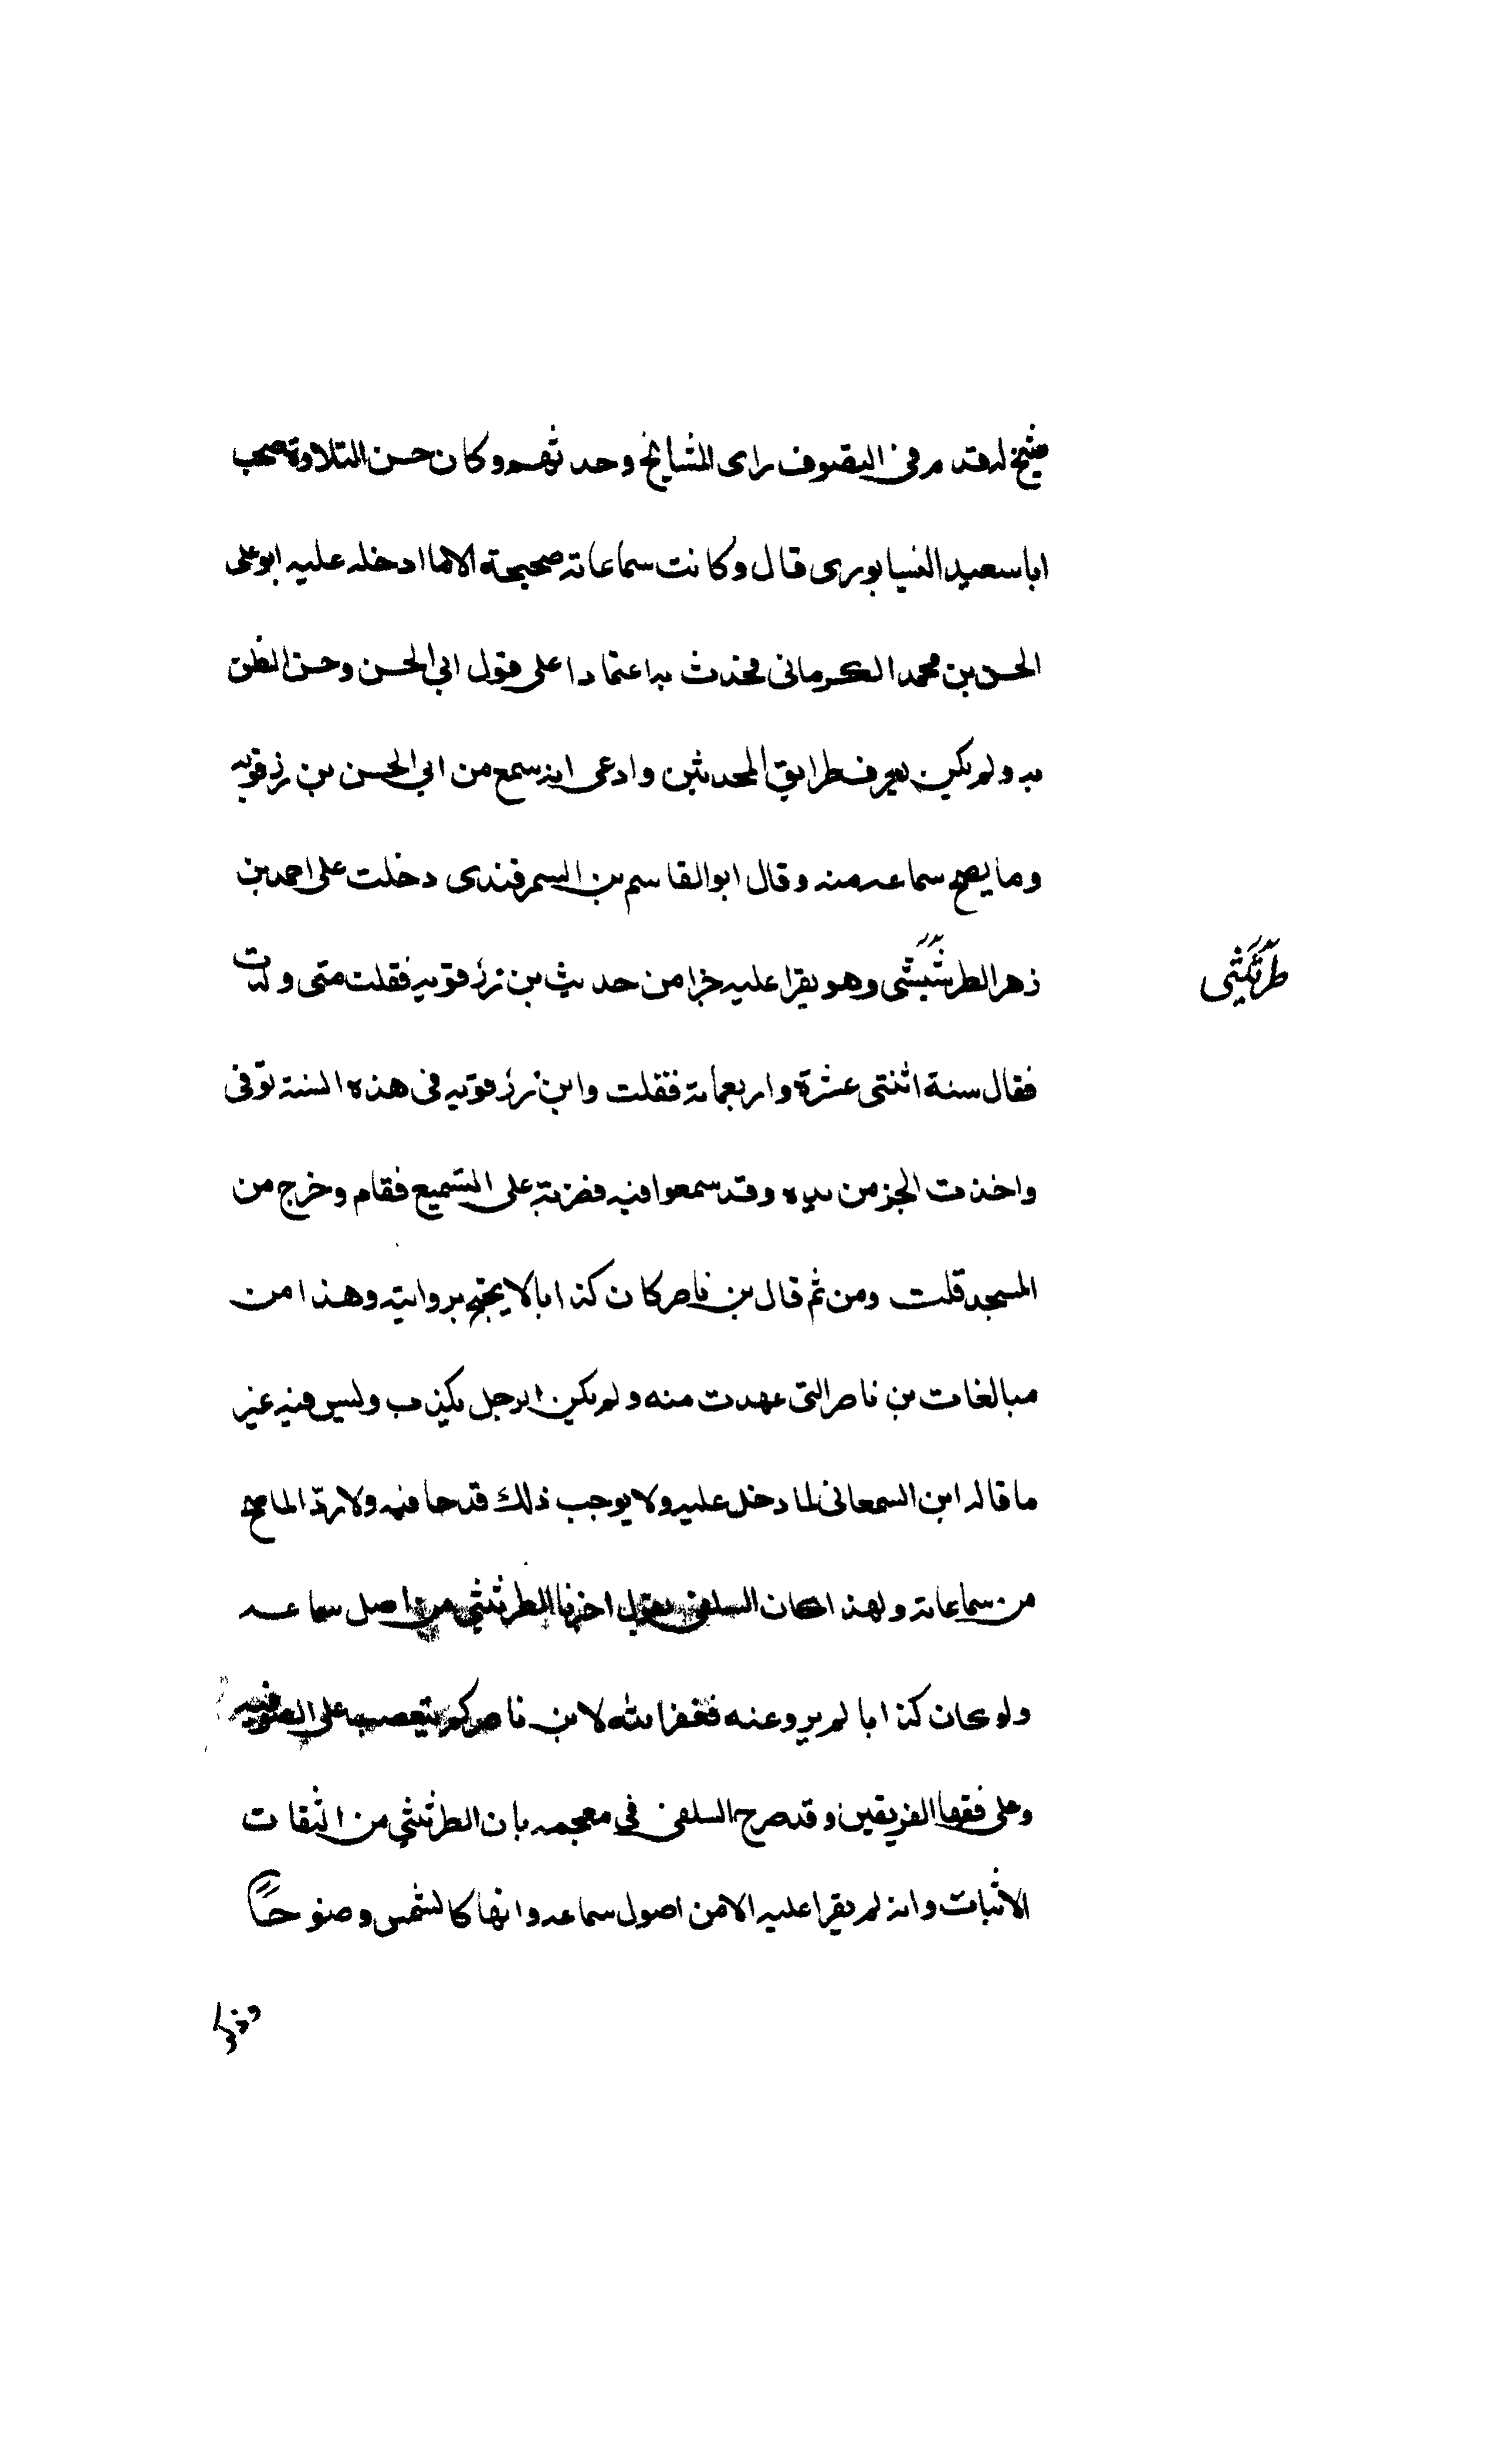 شيخ له قدم في التصوف راى المشايخ وحدثهم وكان حسن التلاوة صحب
ابا سعيد النيسابورى قال وكانت سماعاته صحيحة الا ما ادخله عليه ابو على
الحسن بن محمد الكرماني فحدث به اعتمادا على قول ابي الحسن وحسن الظن
به ولم يكن يعرف طرايق المحدثين وادعى انه سمع من ابي الحسن بن رزقويه
وما يصح سماعه منه وقال ابو القاسم بن السمرقندى دخلت على احمد بن
زهر الطرثيثى وهو يقرا عليه جزا من حديث بن رزقويه فقلت متى ولدت
طرثيثى
فقال سنة اثنتى عشرة واربعماية فقلت وابن رزقويه في هذه السنة توفى
واخذت الجز من يده وقد سمعوا فيه فضربته على التسميع فقام وخرج من
المسجد قلت ومن ثم قال بن ناصر كان كذابا لا يحتج بروايته وهذا من
مبالغات بن ناصر التى عهدت منه ولم يكن الرجل يكذب وليس فيه غير
ما قاله ابن السمعانى لما دخل عليه ولا يوجب ذلك قدحا فيه ولا ردّ الما صح
من سماعاته ولهذا كان السلفى يقول اخبرنا الطرثيثي من اصل سماعه
ولو كان كذابا لم يرو عنه فغفر الله لابن ناصر كم يتعصب على الصوفيه
وعلى فقها الفريقين وقد صرح السلفى في معجمه بان الطرثيثي من الثقات
الاثبات وانه لم يقرا عليه الا من اصول سماعه وانها كالشمس وضوحًا
وذكر